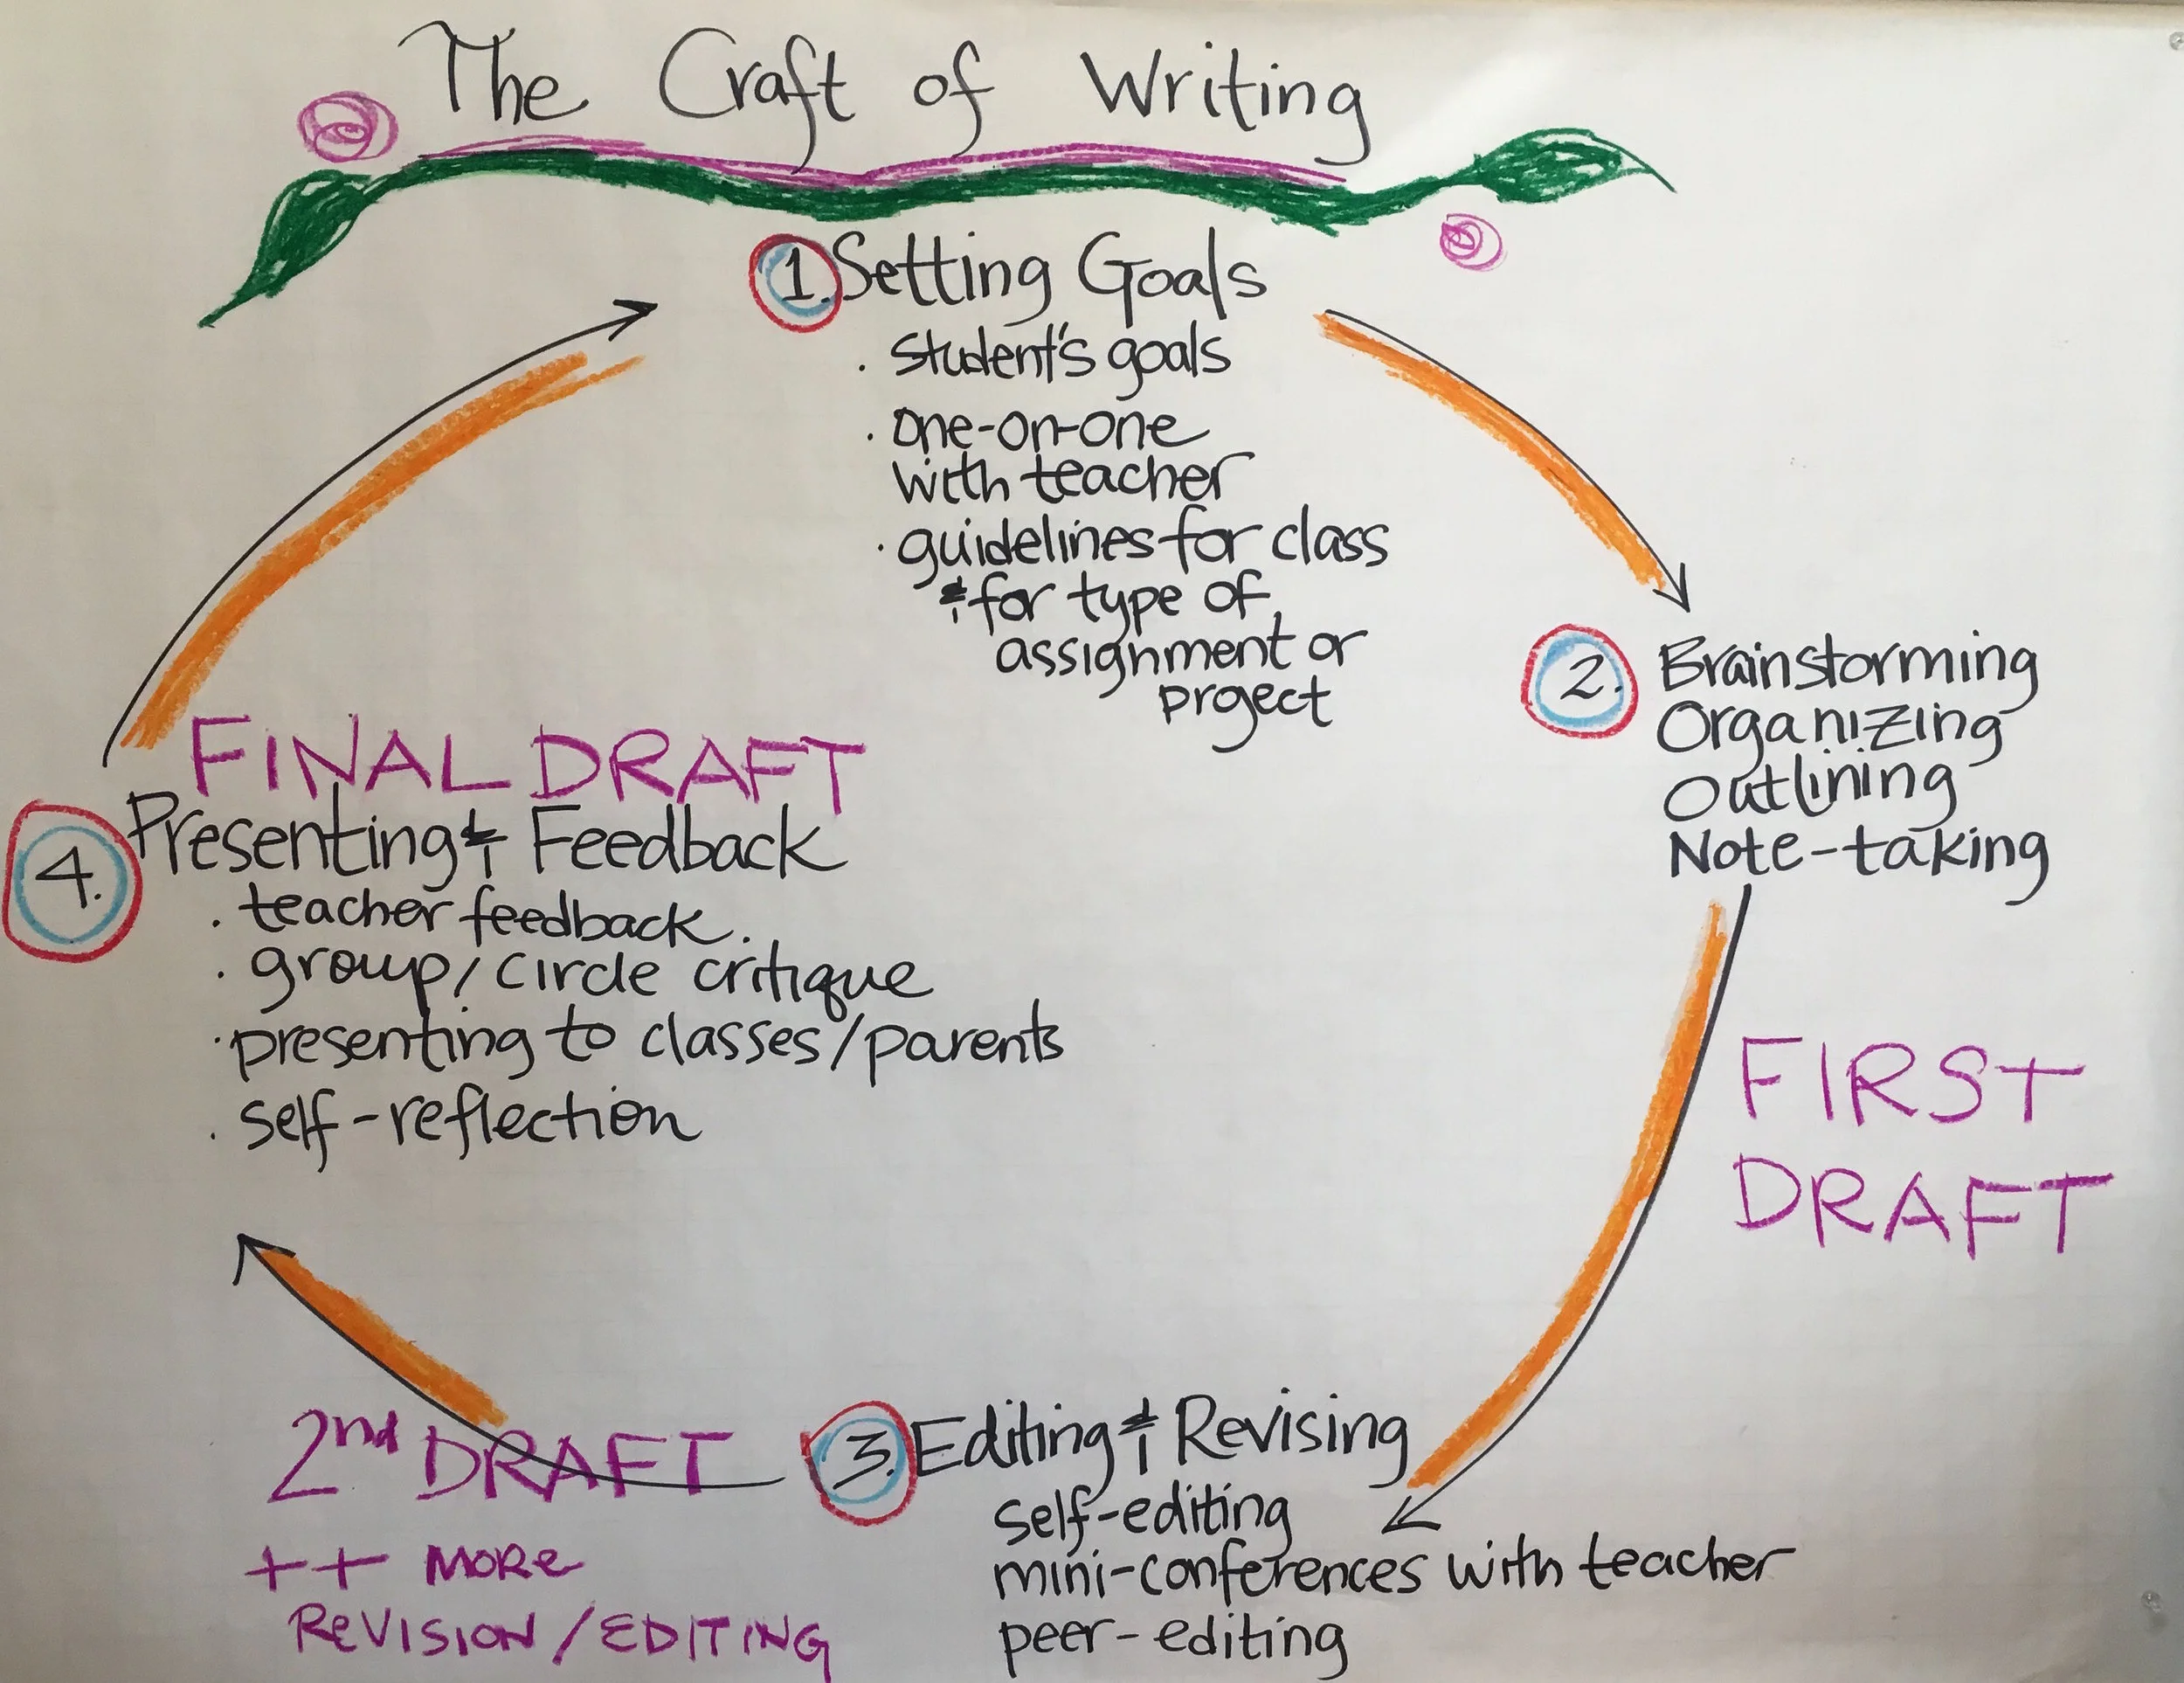 The Craft of Writing
1. Setting Goals
. student's goals
. one-on-one
with teacher
. guidelines for class
& for type of
assignment or
project
2. Brainstorming
Organizing
Outlining
Note-taking
FIRST
DRAFT
3. Editing & Revising
self-editing
mini-conferences with teacher
peer-editing
2nd DRAFT
++ MORE
REVISION/EDITING
FINAL DRAFT
4. Presenting & Feedback
. teacher feedback.
. group/circle critique
. presenting to classes/parents
. self-reflection